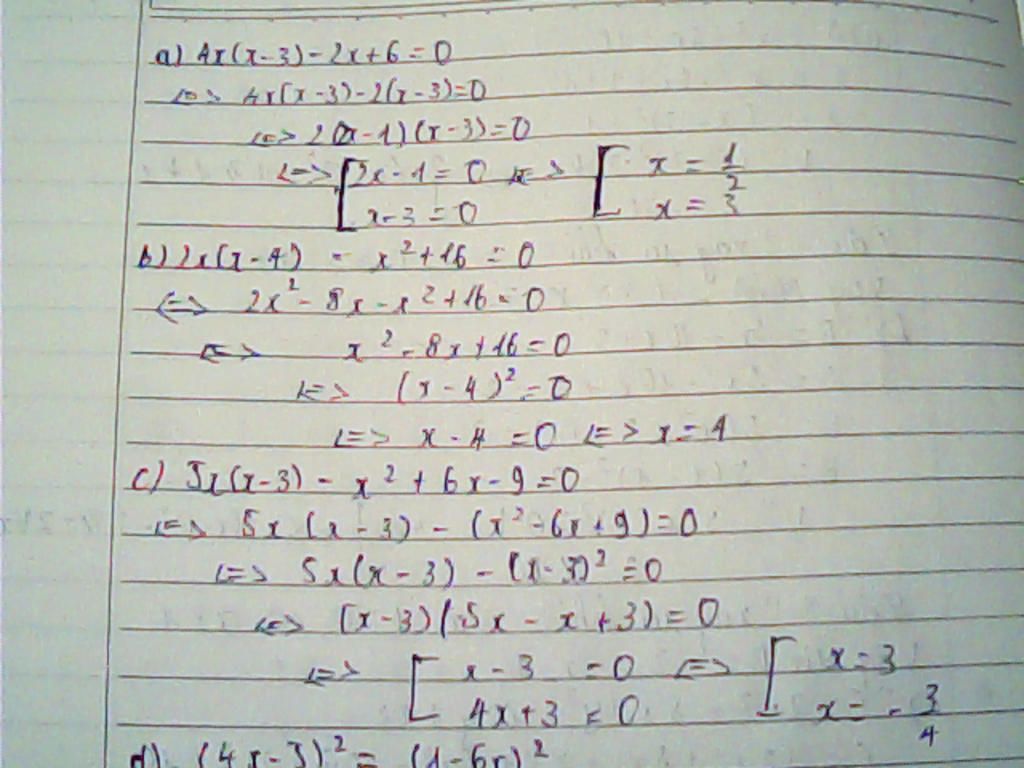 a) 4x(x-3) - 2x + 6 = 0
<=> 4x(x-3) - 2(x-3) = 0
<=> 2(2x-1)(x-3) = 0
<=> [ 2x - 1 = 0 <=> [ x = 1/2
x - 3 = 0 x = 3
b) 2x(x-4) - x² + 16 = 0
<=> 2x² - 8x - x² + 16 = 0
<=> x² - 8x + 16 = 0
<=> (x-4)² = 0
<=> x - 4 = 0 <=> x = 4
c) 5x(x-3) - x² + 6x - 9 = 0
<=> 5x(x-3) - (x² - 6x + 9) = 0
<=> 5x(x-3) - (x-3)² = 0
<=> (x-3)(5x - x + 3) = 0
<=> [ x - 3 = 0 <=> [ x = 3
4x + 3 = 0 x = -3/4
d) (4x-3)² = (1-6x)²